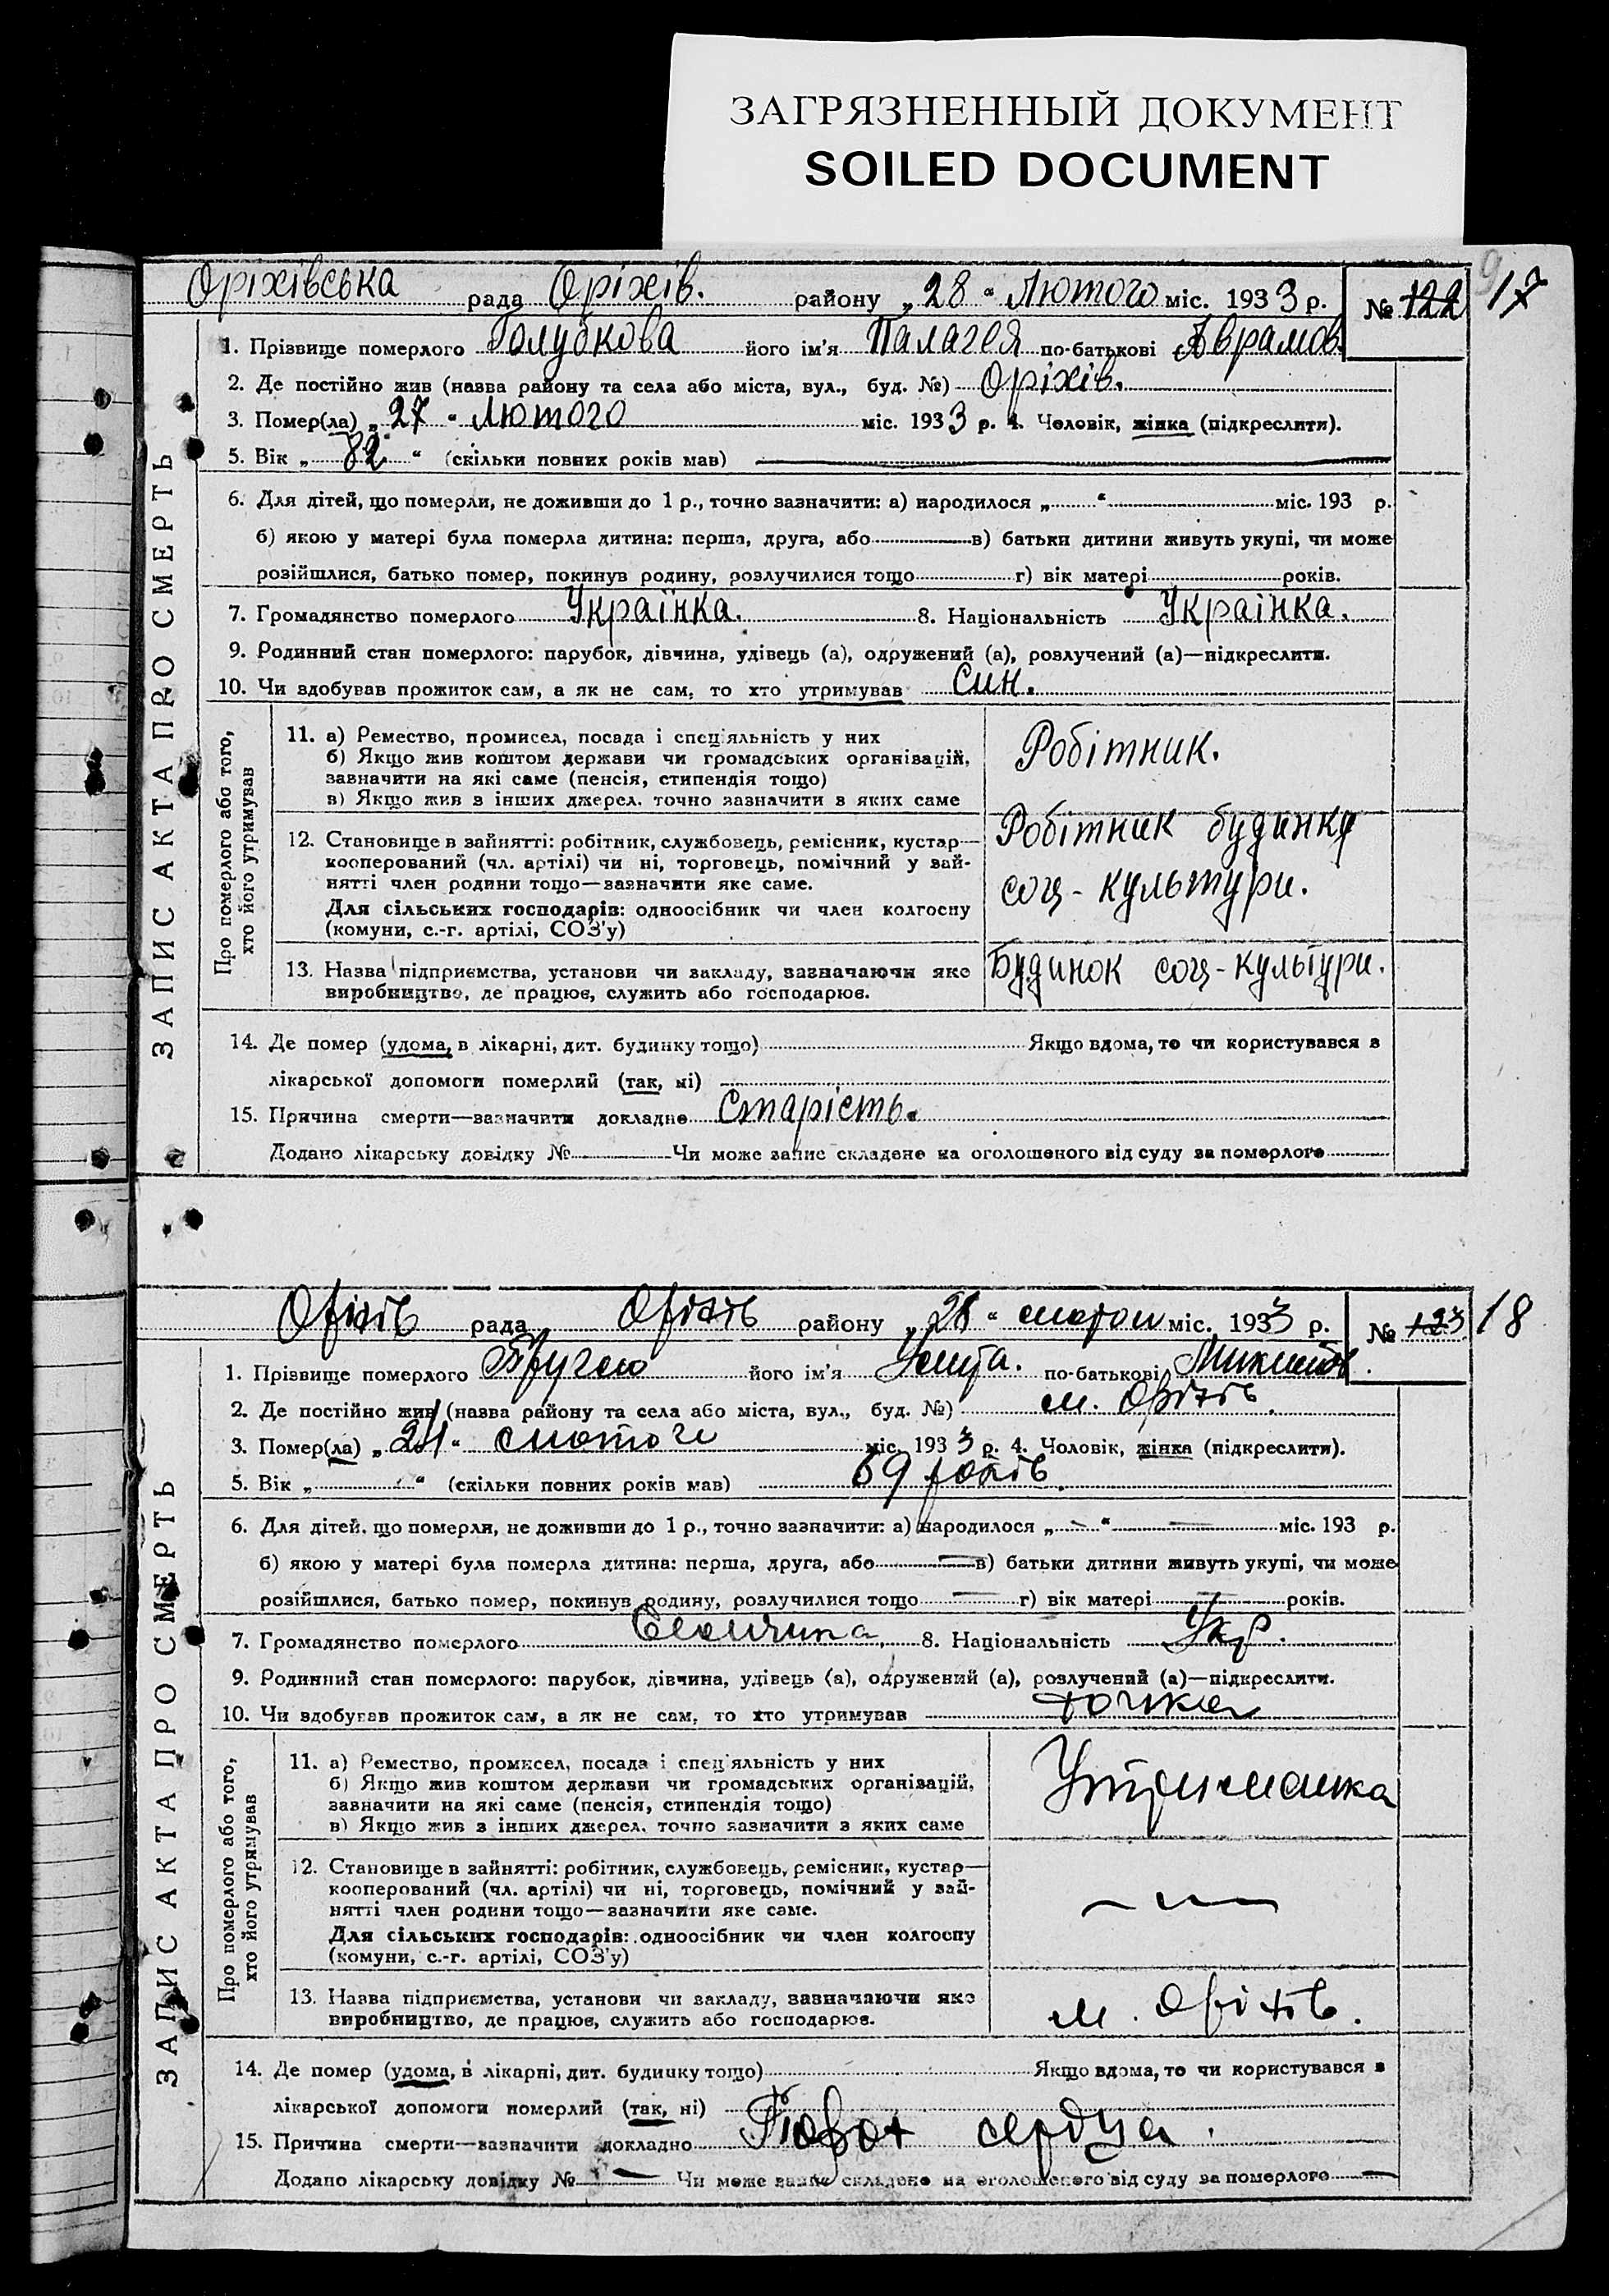 ЗАГРЯЗНЕННЫЙ ДОКУМЕНТ
SOILED DOCUMENT
9
Оріхівська рада Оріхів. району „28“ Лютого міс. 1933 р. № 122 17
1. Прізвище померлого Голубкова його ім’я Палагея по-батькові Аврамов.
2. Де постійно жив (назва району та села або міста, вул., буд. №) Оріхів.
3. Помер(ла) „27“ Лютого міс. 1933 р. 4. Чоловік, жінка (підкреслити).
5. Вік „82“ (скільки повних років мав)
6. Для дітей, що померли, не доживши до 1 р., точно зазначити: а) народилося „ “ міс. 193 р.
б) якою у матері була померла дитина: перша, друга, або в) батьки дитини живуть укупі, чи може
розійшлися, батько помер, покинув родину, розлучилися тощо г) вік матері років.
7. Громадянство померлого Українка. 8. Національність Українка.
9. Родинний стан померлого: парубок, дівчина, удівець (а), одружений (а), розлучений (а)—підкреслити.
10. Чи здобував прожиток сам, а як не сам, то хто утримував Син.
ЗАПИС АКТА ПРО СМЕРТЬ
Про померлого або того,
хто його утримував
11. а) Ремество, промисел, посада і спец яльність у них
б) Якщо жив коштом держави чи громадських організацій,
зазначити на які саме (пенсія, стипендія тощо)
в) Якщо жив з інших джерел, точно зазначити з яких саме
Робітник.
12. Становище в зайнятті: робітник, службовець, ремісник, кустар—
кооперований (чл. артілі) чи ні, торговець, помічний у зай-
нятті член родини тощо—зазначити яке саме.
Для сільських господарів: одноосібник чи член колгоспу
(комуни, с.-г. артілі, СОЗ’у)
Робітник будинку
соц-культури.
13. Назва підприємства, установи чи закладу, зазначаючи яке
виробництво, де працює, служить або господарює.
Будинок соц-культури.
14. Де помер (удома, в лікарні, дит. будинку тощо) Якщо вдома, то чи користувався з
лікарської допомоги померлий (так, ні)
15. Причина смерти—зазначити докладно Старість.
Додано лікарську довідку № Чи може запис складено на оголошеного від суду за померлого
Оріхів рада Оріхів району „28“ лютого міс. 1933 р. № 123 18
1. Прізвище померлого його ім’я по-батькові
2. Де постійно жив (назва району та села або міста, вул., буд. №) м. Оріхів.
3. Помер(ла) „ “ лютого міс. 1933 р. 4. Чоловік, жінка (підкреслити).
5. Вік „ “ (скільки повних років мав) 69 років.
6. Для дітей, що померли, не доживши до 1 р., точно зазначити: а) народилося „ “ міс. 193 р.
б) якою у матері була померла дитина: перша, друга, або в) батьки дитини живуть укупі, чи може
розійшлися, батько помер, покинув родину, розлучилися тощо г) вік матері років.
7. Громадянство померлого 8. Національність Укр.
9. Родинний стан померлого: парубок, дівчина, удівець (а), одружений (а), розлучений (а)—підкреслити.
10. Чи здобував прожиток сам, а як не сам, то хто утримував дочка
ЗАПИС АКТА ПРО СМЕРТЬ
Про померлого або того,
хто його утримував
11. а) Ремество, промисел, посада і спец яльність у них
б) Якщо жив коштом держави чи громадських організацій,
зазначити на які саме (пенсія, стипендія тощо)
в) Якщо жив з інших джерел, точно зазначити з яких саме
Утриманка
12. Становище в зайнятті: робітник, службовець, ремісник, кустар—
кооперований (чл. артілі) чи ні, торговець, помічний у зай-
нятті член родини тощо—зазначити яке саме.
Для сільських господарів: одноосібник чи член колгоспу
(комуни, с.-г. артілі, СОЗ’у)
13. Назва підприємства, установи чи закладу, зазначаючи яке
виробництво, де працює, служить або господарює.
м. Оріхів.
14. Де помер (удома, в лікарні, дит. будинку тощо) Якщо вдома, то чи користувався з
лікарської допомоги померлий (так, ні)
15. Причина смерти—зазначити докладно серця.
Додано лікарську довідку № — Чи може запис складено на оголошеного від суду за померлого —